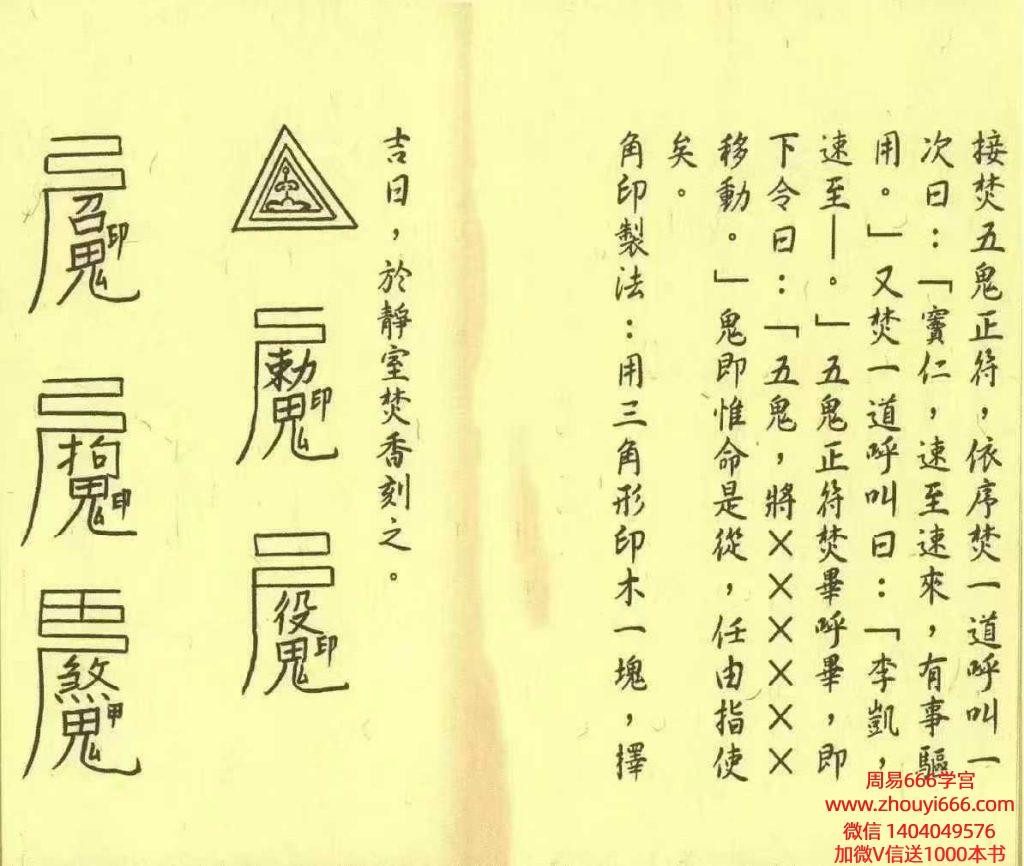 接焚五鬼正符，依序焚一道呼叫一
次曰：「竇仁，速至速來，有事驅
用。」又焚一道呼叫曰：「李凱，
速至—。」五鬼正符焚畢呼畢，即
下令曰：「五鬼，將××××××
移動。」鬼即惟命是從，任由指使
矣。
角印製法：用三角形印木一塊，擇
吉日，於靜室焚香刻之。
勅鬼印
役鬼印
召鬼印
拘鬼印
煞鬼甲
周易666学宫
www.zhouyi666.com
微信 1404049576
加微V信送1000本书